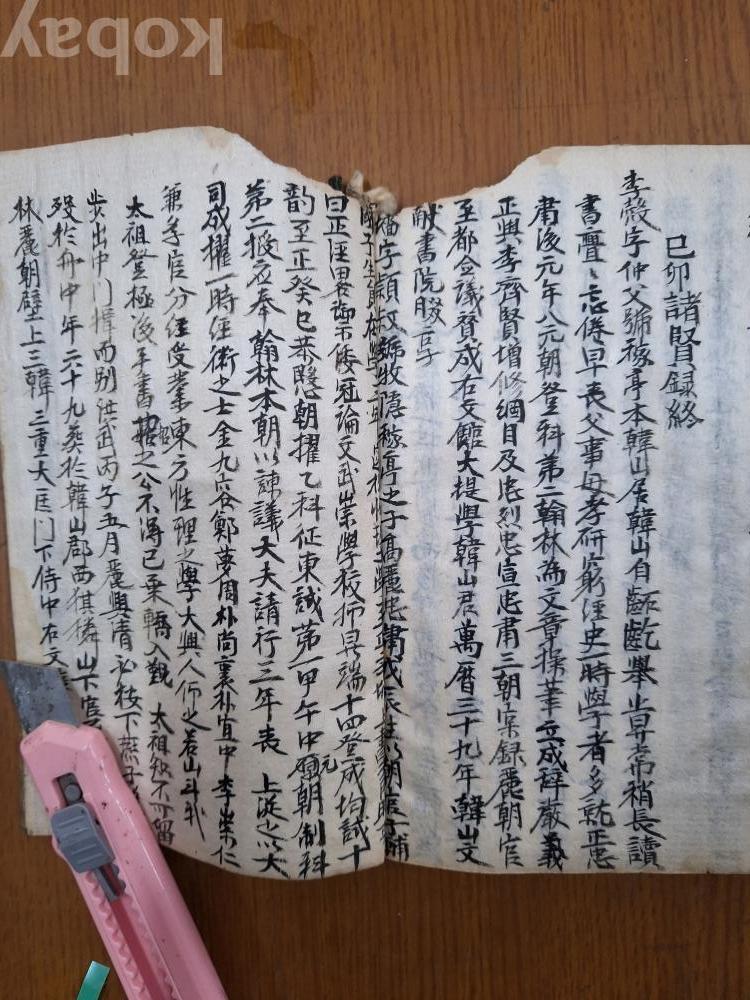 己卯諸賢錄終
李穀字仲父號稼亭本韓山居韓山自齠齔擧止異常稍長讀
書亹〻忘倦早喪父事母孝硏窮經史一時學者多就正忠
肅後元年入元朝登科第二翰林為文章操筆立成辞嚴義
正與李齊賢增修綱目及忠烈忠宣忠肅三朝實錄麗朝官
至都僉議贊成右文館大提學韓山君萬曆三十九年韓山文
献書院腏享
穡字頴叔號牧隱稼亭之子高麗忠肅
日正經界論禦倭冠論文武崇學校抑異端十四登成均試十
韵至正癸巳恭愍朝擢乙科征東試第一甲午中元朝制科
第二授應奉翰林本朝以諫議大夫請行三年喪上從之以大
司成擢一時經術之士金九容鄭夢周朴尙衷朴宜中李崇仁
兼學官分經受業東方性理之學大興人仰之若山斗我
太祖登極後手書招之公不得已乗轎入覲太祖知不可留
步出中门揖而别洪武丙子五月麗興淸心楼下燕子
歿於舟中年六十九葬於韓山郡西猉獜山下官
林麗朝壁上三韓三重大匡门下侍中右文
kobay